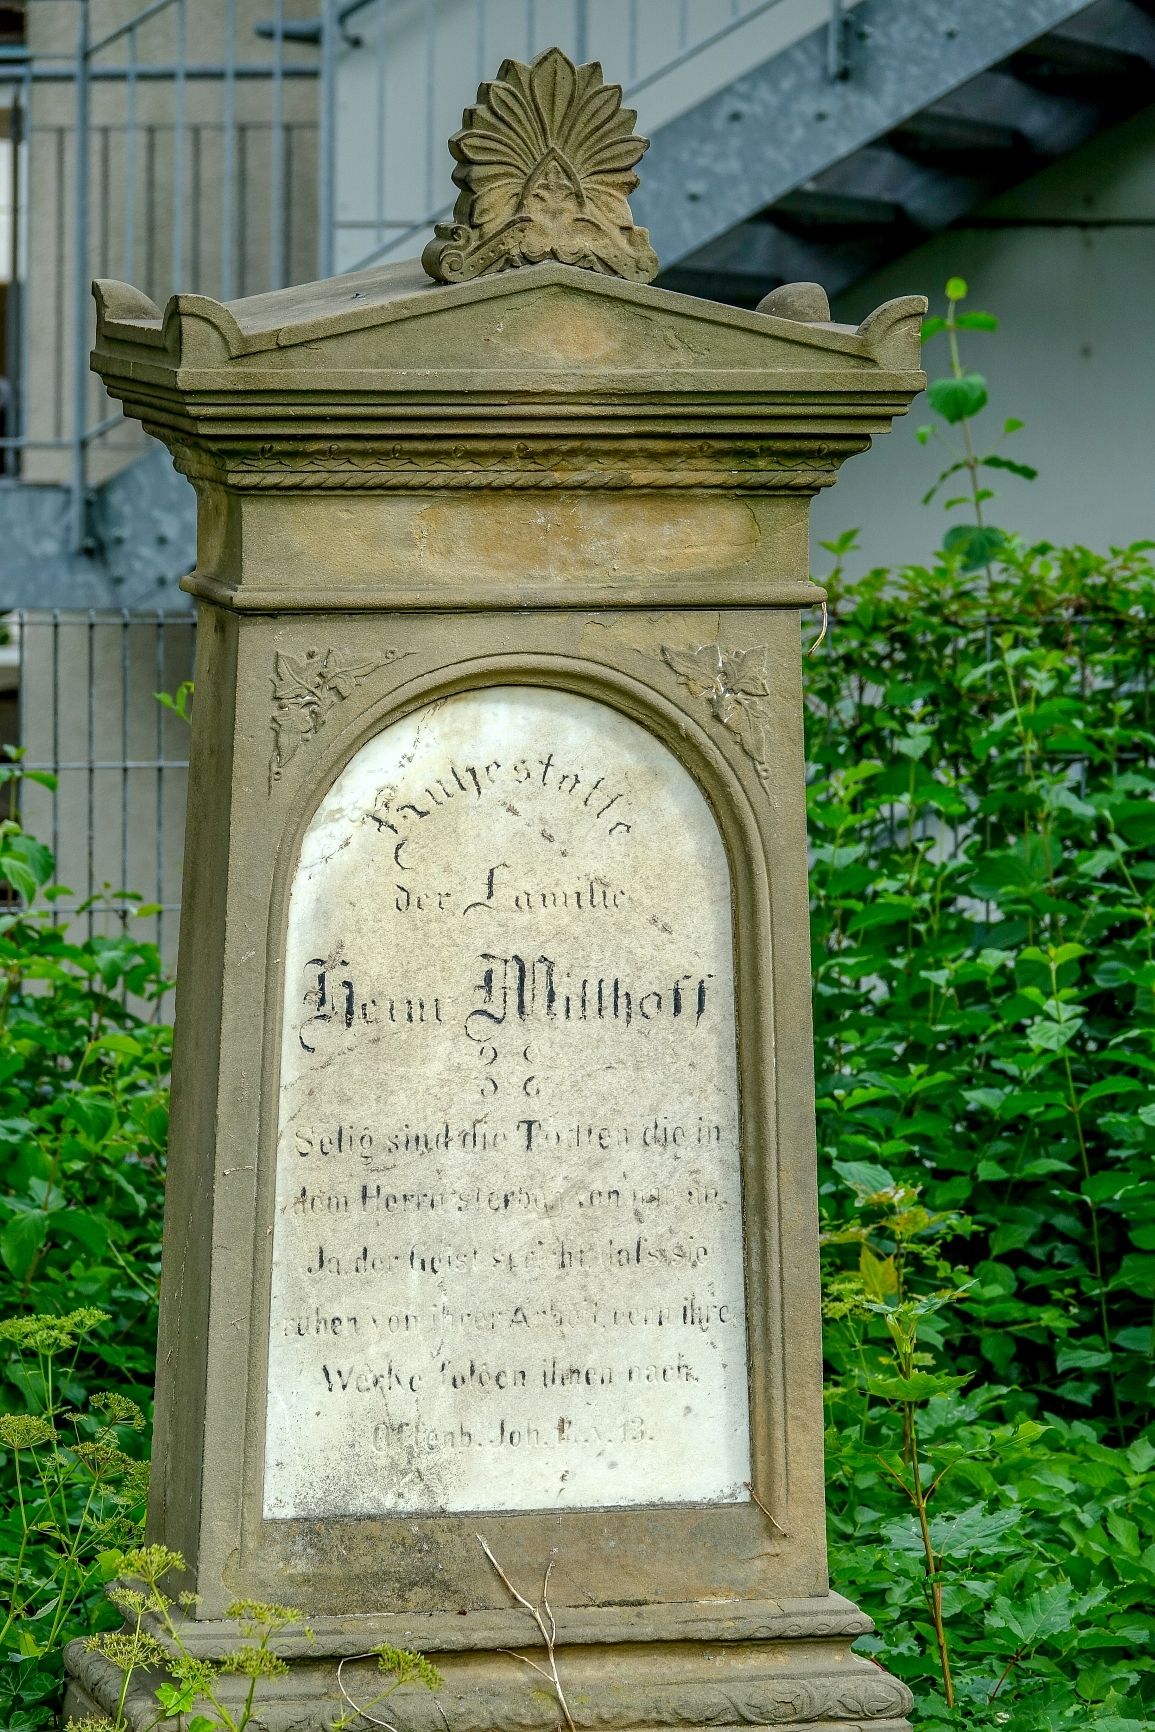 Ruhestätte
der Familie
Heinr Millhoff
Selig sind die Todten die in
dem Herrn sterben von nun an.
Ja der Geist spricht, dass sie
ruhen von ihrer Arbeit denn ihre
Werke folgen ihnen nach.
Offenb. Joh. 13.